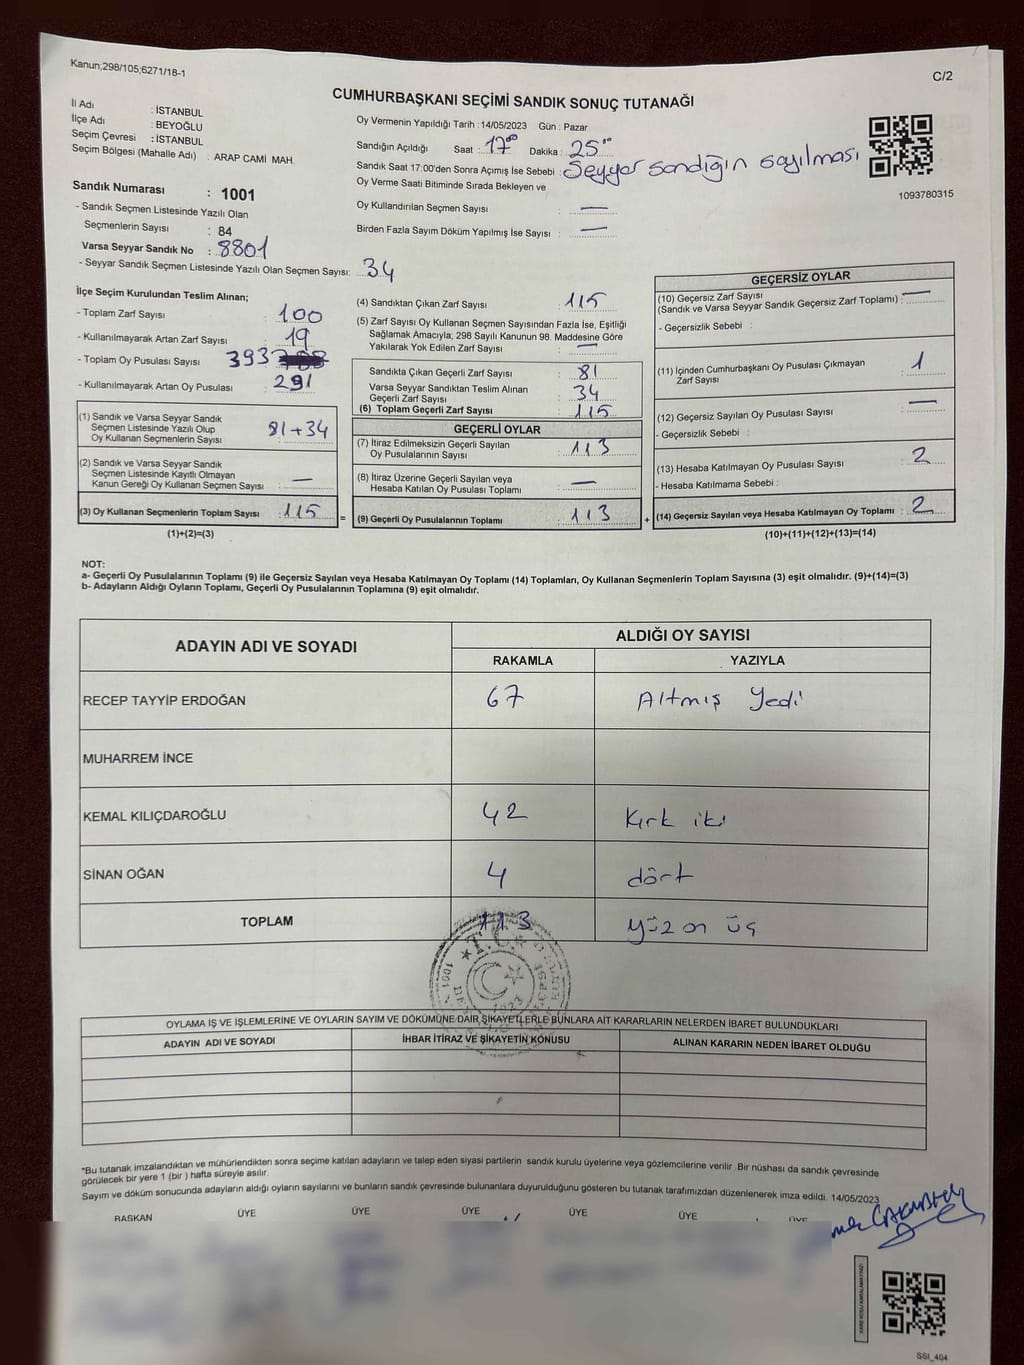 Kanun;298/105;6271/18-1
C/2
CUMHURBAŞKANI SEÇİMİ SANDIK SONUÇ TUTANAĞI
İl Adı : İSTANBUL
İlçe Adı : BEYOĞLU
Seçim Çevresi : İSTANBUL
Seçim Bölgesi (Mahalle Adı) : ARAP CAMİ MAH.
Sandık Numarası : 1001
- Sandık Seçmen Listesinde Yazılı Olan
Seçmenlerin Sayısı : 84
Varsa Seyyar Sandık No : 8801
- Seyyar Sandık Seçmen Listesinde Yazılı Olan Seçmen Sayısı: 34
Oy Vermenin Yapıldığı Tarih : 14/05/2023 Gün : Pazar
Sandığın Açıldığı Saat : 17⁰⁰ Dakika : 25⁰⁰
Sandık Saat 17:00'den Sonra Açımış İse Sebebi : Seyyar sandığın sayılması
Oy Verme Saati Bitiminde Sırada Bekleyen ve
Oy Kullandırılan Seçmen Sayısı : —
Birden Fazla Sayım Döküm Yapılmış İse Sayısı : —
1093780315
İlçe Seçim Kurulundan Teslim Alınan;
- Toplam Zarf Sayısı : 100
- Kullanılmayarak Artan Zarf Sayısı : 19
- Toplam Oy Pusulası Sayısı 393
- Kullanılmayarak Artan Oy Pusulası : 291
(1) Sandık ve Varsa Seyyar Sandık
Seçmen Listesinde Yazılı Olup
Oy Kullanan Seçmenlerin Sayısı : 81+34
(2) Sandık ve Varsa Seyyar Sandık
Seçmen Listesinde Kayıtlı Olmayan
Kanun Gereği Oy Kullanan Seçmen Sayısı : —
(3) Oy Kullanan Seçmenlerin Toplam Sayısı : 115
(1)+(2)=(3)
(4) Sandıktan Çıkan Zarf Sayısı : 115
(5) Zarf Sayısı Oy Kullanan Seçmen Sayısından Fazla İse, Eşitliği
Sağlamak Amacıyla; 298 Sayılı Kanunun 98. Maddesine Göre
Yakılarak Yok Edilen Zarf Sayısı : —
Sandıkta Çıkan Geçerli Zarf Sayısı : 81
Varsa Seyyar Sandıktan Teslim Alınan
Geçerli Zarf Sayısı : 34
(6) Toplam Geçerli Zarf Sayısı : 115
GEÇERLİ OYLAR
(7) İtiraz Edilmeksizin Geçerli Sayılan
Oy Pusulalarının Sayısı : 113
(8) İtiraz Üzerine Geçerli Sayılan veya
Hesaba Katılan Oy Pusulası Toplamı : —
= (9) Geçerli Oy Pusulalarının Toplamı : 113 +
GEÇERSİZ OYLAR
(10) Geçersiz Zarf Sayısı
(Sandık ve Varsa Seyyar Sandık Geçersiz Zarf Toplamı) : —
- Geçersizlik Sebebi :
(11) İçinden Cumhurbaşkanı Oy Pusulası Çıkmayan
Zarf Sayısı : 1
(12) Geçersiz Sayılan Oy Pusulası Sayısı : —
- Geçersizlik Sebebi :
(13) Hesaba Katılmayan Oy Pusulası Sayısı : 2
- Hesaba Katılmama Sebebi :
(14) Geçersiz Sayılan veya Hesaba Katılmayan Oy Toplamı : 2
(10)+(11)+(12)+(13)=(14)
NOT:
a- Geçerli Oy Pusulalarının Toplamı (9) ile Geçersiz Sayılan veya Hesaba Katılmayan Oy Toplamı (14) Toplamları, Oy Kullanan Seçmenlerin Toplam Sayısına (3) eşit olmalıdır. (9)+(14)=(3)
b- Adayların Aldığı Oyların Toplamı, Geçerli Oy Pusulalarının Toplamına (9) eşit olmalıdır.
ADAYIN ADI VE SOYADI
ALDIĞI OY SAYISI
RAKAMLA YAZIYLA
RECEP TAYYİP ERDOĞAN 67 Altmış Yedi
MUHARREM İNCE
KEMAL KILIÇDAROĞLU 42 Kırk iki
SİNAN OĞAN 4 dört
TOPLAM 113 yüz on üç
T.C.
1001
1923
OYLAMA İŞ VE İŞLEMLERİNE VE OYLARIN SAYIM VE DÖKÜMÜNE DAİR ŞİKAYETLERLE BUNLARA AİT KARARLARIN NELERDEN İBARET BULUNDUKLARI
ADAYIN ADI VE SOYADI İHBAR İTİRAZ VE ŞİKAYETİN KONUSU ALINAN KARARIN NEDEN İBARET OLDUĞU
*Bu tutanak imzalandıktan ve mühürlendikten sonra seçime katılan adayların ve talep eden siyasi partilerin sandık kurulu üyelerine veya gözlemcilerine verilir. Bir nüshası da sandık çevresinde
görülecek bir yere 1 (bir ) hafta süreyle asılır.
Sayım ve döküm sonucunda adayların aldığı oyların sayılarını ve bunların sandık çevresinde bulunanlara duyurulduğunu gösteren bu tutanak tarafımızdan düzenlenerek imza edildi. 14/05/2023
BAŞKAN ÜYE ÜYE ÜYE ÜYE ÜYE ÜYE
SSI_404